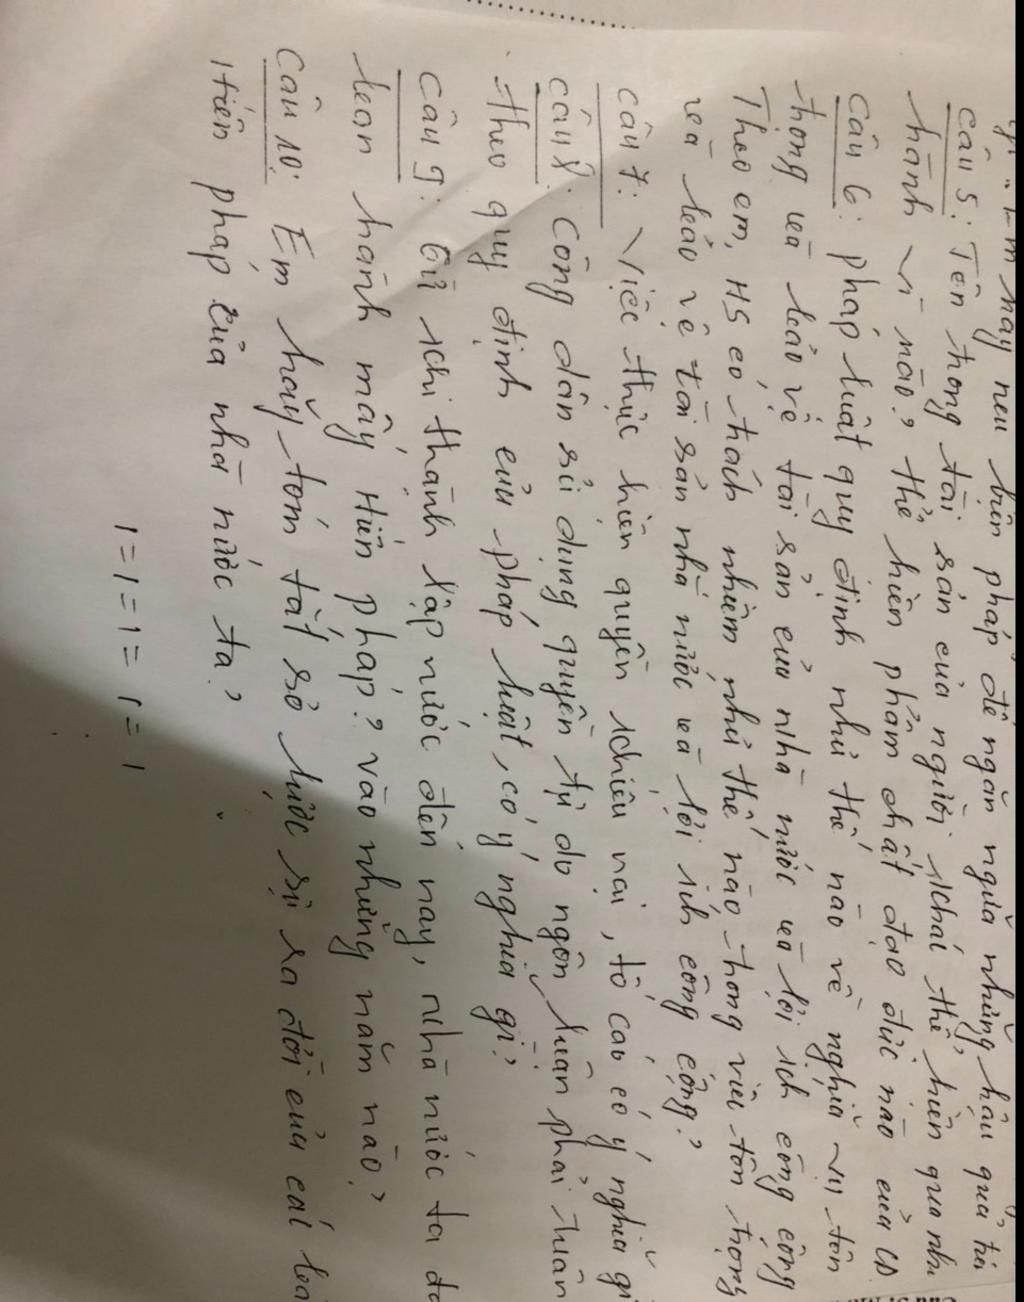 nay nêu biện pháp để ngăn ngừa những hậu quả
Câu 5: Tôn trọng tài sản của người khác thể hiện qua
hành vi nào? thể hiện phẩm chất đạo đức nào của CD
Câu 6: pháp luật quy định như thế nào về nghĩa vụ tôn
trọng và bảo vệ tài sản của nhà nước và lợi ích công cộng
Theo em, HS có trách nhiệm như thế nào trong việc tôn trọng
và bảo vệ tài sản nhà nước và lợi ích công cộng?
Câu 7: Việc thực hiện quyền khiếu nại, tố cáo có ý nghĩa gì
Câu 8: Công dân sử dụng quyền tự do ngôn luận phải tuân
theo quy định của pháp luật, có ý nghĩa gì?
Câu 9: Từ khi thành lập nước đến nay, nhà nước ta
ban hành mấy Hiến pháp? vào những năm nào?
Câu 10: Em hãy tóm tắt sơ lược sự ra đời của các
Hiến pháp của nhà nước ta?
1=1=1=1=1